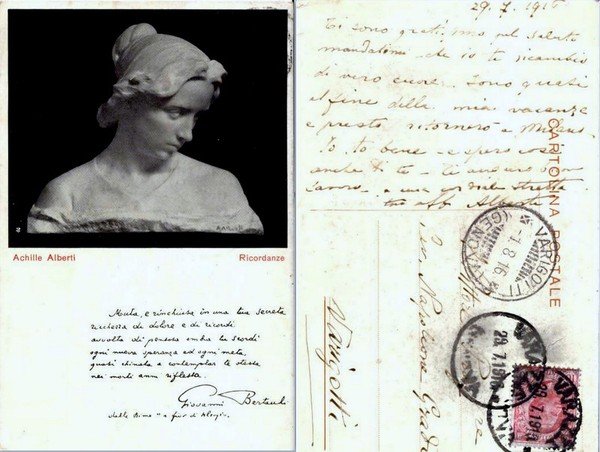 AA. Alberti
Achille Alberti Ricordanze
Muta, e rinchiusa in una tua secreta
ricchezza di dolore e di ricordi
avvolta di pensosa ombra tu scordi
ogni nuova speranza ed ogni meta,
quasi chinata a contemplar te stessa
nei morti anni riflessa.
Giovanni Bertacchi
dalle Rime "a fior di
29.7.1916
Ti sono gratissimo pel saluto
mandatomi che io ti ricambio
di vero cuore. Sono quasi
al fine della mia vacanza
e presto ritornerò a Milano
Io sto bene e spero così
anche di te - ti auguro buon
lavoro - e una cordiale stretta
tuo aff Alberti
CARTOLINA POSTALE
VARIGOTTI
(GENOVA)
1.8.16
Napoleone
Varigotti
29.7.1916
29.7.1916